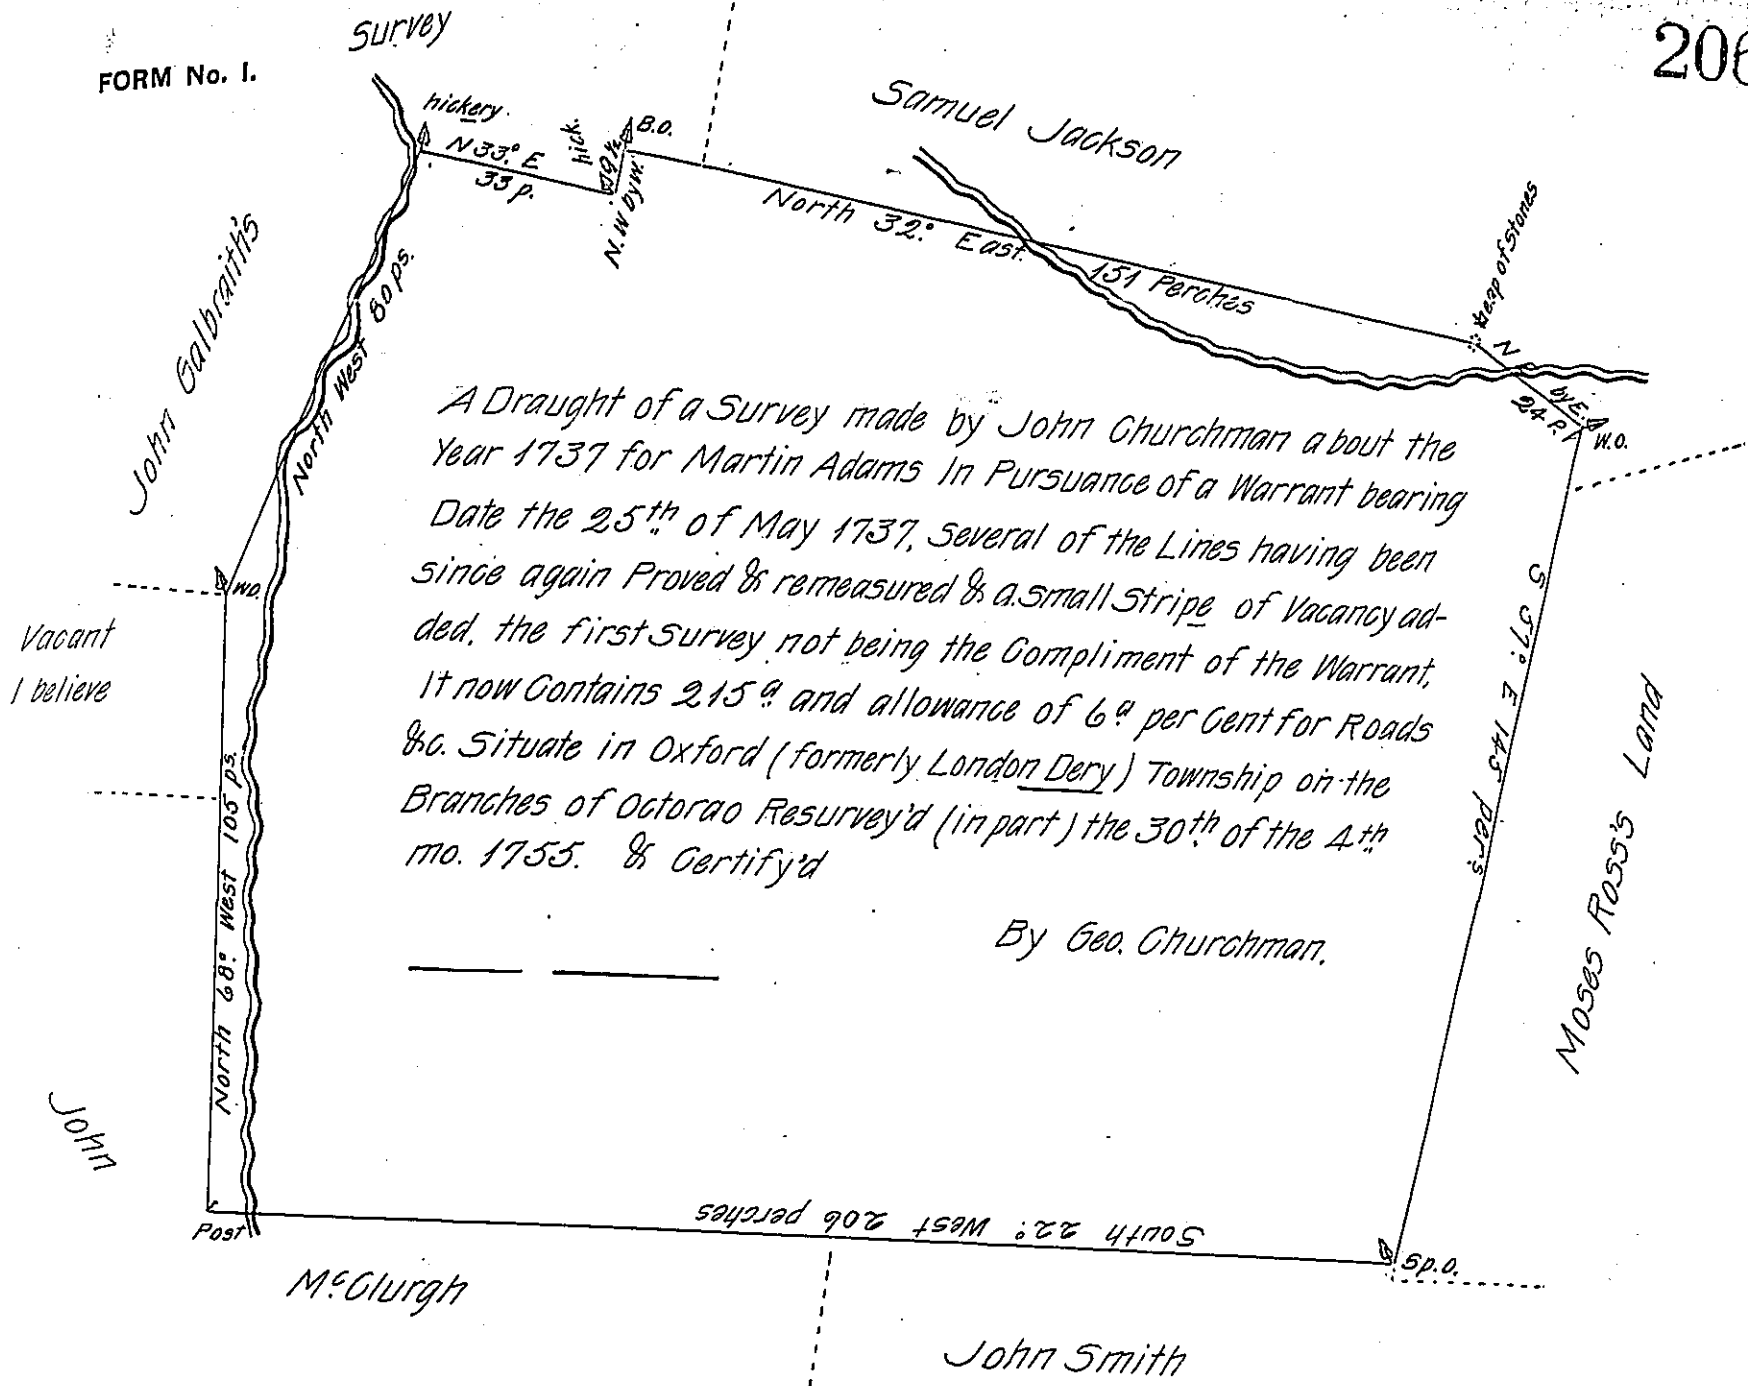 Survey
FORM No. 1.
hickery.
N 33.° E
33 p.
hick.
9 ½
N. W by W.
B.O.
Samuel Jackson
North 32.° East.
151 Perches
heap of stones
by E.
24 P.
W.O.
John Galbraith's
North West 80 ps.
A Draught of a Survey made by John Churchman about the
Year 1737 for Martin Adams In Pursuance of a Warrant bearing
Date the 25th of May 1737, Several of the Lines having been
since again Proved & remeasured & a small Stripe of Vacancy ad-
ded, the first Survey not being the Compliment of the Warrant,
It now Contains 215 a and allowance of 6 a per Cent for Roads
&c. Situate in Oxford (formerly London Dery) Township on the
Branches of Octorao Resurvey'd (in part) the 30th of the 4th
mo. 1755. & Certify'd
By Geo. Churchman.
W.O.
Vacant
I believe
North 68° West 105 ps.
S 57° E 145 pers
Moses Ross's Land
John
Post
South 22° West 206 perches
Sp.O.
McClurgh
John Smith